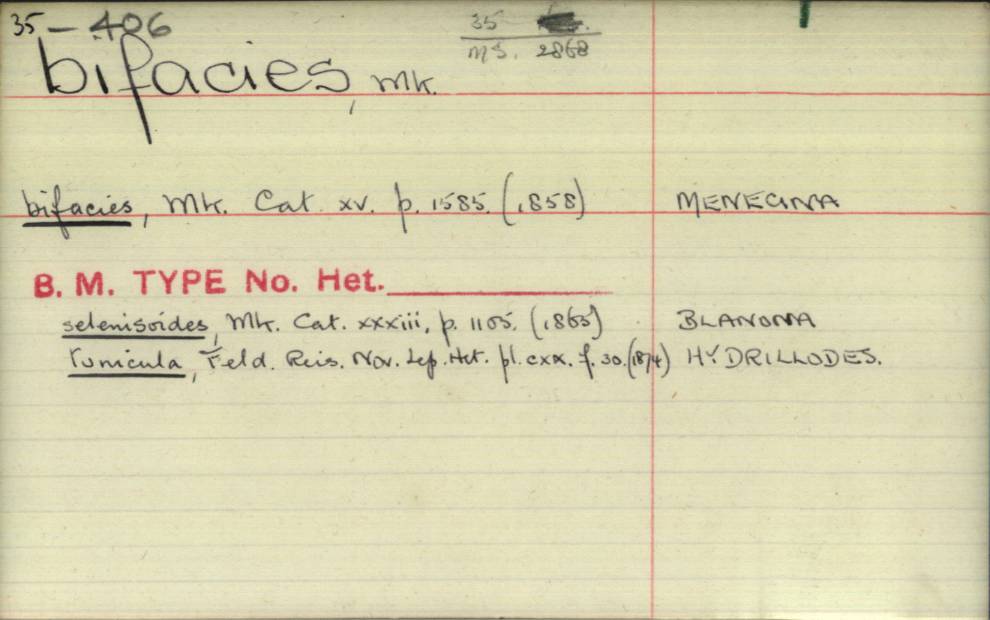 35 - 406
35
MS. 2868
bifacies, Wlk.
bifacies, Wlk. Cat. xv. p. 1585. (1858) MENECINA
B. M. TYPE No. Het.
selenisoides, Wlk. Cat. xxxiii, p. 1105. (1865) BLANONA
tunicula, Feld. Reis. Nov. Lep. Het. pl. cxx. f. 30. (1874) HYDRILLODES.